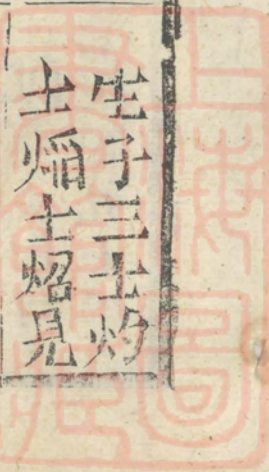 生子三士灼
士熖士炤見